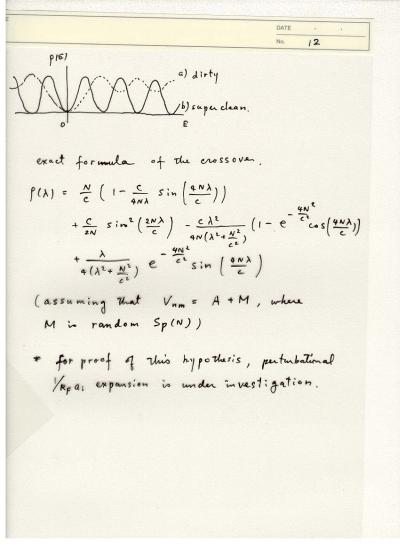 DATE
No. 12
ρ(E)
a) dirty
b) superclean.
0 E
exact formula of the crossover.
ρ(λ) = N/c ( 1 - c/4Nλ sin (4Nλ/c))
+ c/2N sin² (2Nλ/c) - cλ²/4N(λ²+N²/c²) (1 - e^{-4N²/c²} cos(4Nλ/c))
+ λ/4(λ²+N²/c²) e^{-4N²/c²} sin (4Nλ/c)
(assuming that Vnm = A + M, where
M is random Sp(N))
* for proof of this hypothesis, perturbational
expansion is under investigation.